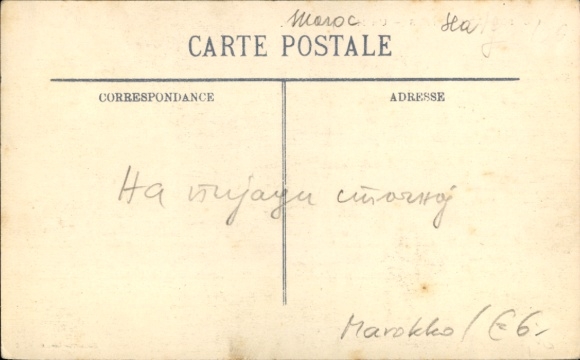 Maroc
На
CARTE POSTALE
CORRESPONDANCE
ADRESSE
На пијаци сточној
Marokko / € 6.-